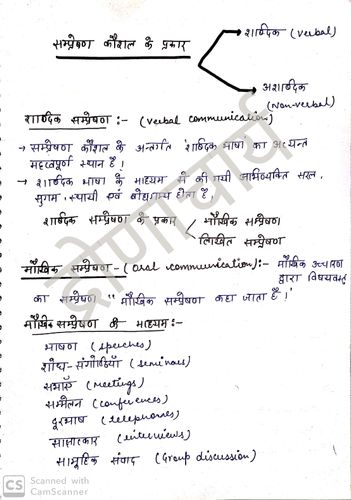 सम्प्रेषण कौशल के प्रकार
शाब्दिक (verbal)
अशाब्दिक
(Non-verbal)
शाब्दिक सम्प्रेषण :- (verbal communication)
→ सम्प्रेषण कौशल के अन्तर्गत 'शाब्दिक भाषा' का अत्यन्त
महत्वपूर्ण स्थान है !
→ शाब्दिक भाषा के माध्यम से की गयी अभिव्यक्ति सरल,
सुगम, स्थायी एवं बोधगम्य होता है,
शाब्दिक सम्प्रेषण के प्रकार
मौखिक सम्प्रेषण
लिखित सम्प्रेषण
मौखिक सम्प्रेषण - (oral communication) :- मौखिक उच्चारण
द्वारा विषयवस्तु
का सम्प्रेषण "मौखिक सम्प्रेषण कहा जाता है !"
मौखिक सम्प्रेषण के माध्यम :-
भाषण (speeches)
शोध-संगोष्ठियाँ (seminars)
सभाएँ (Meetings)
सम्मेलन (conferences)
दूरभाष (telephones)
साक्षात्कार (interviews)
सामूहिक संवाद (Group discussion)
द्रोणाचार्य
CS Scanned with
CamScanner